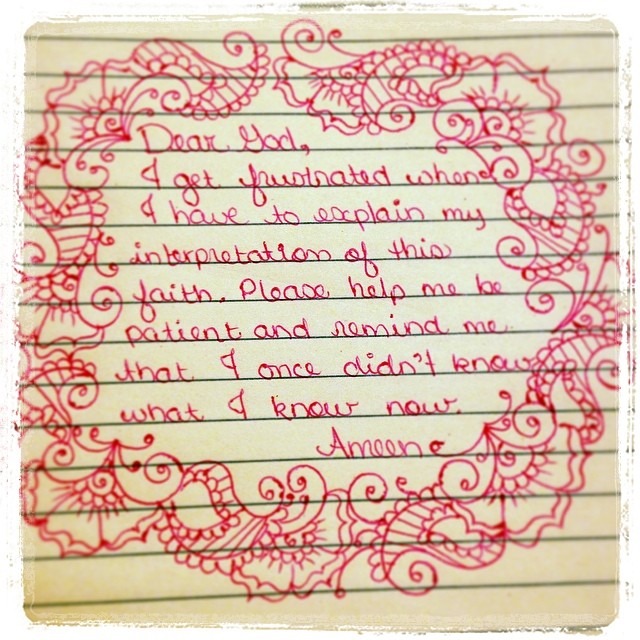 Dear God,
I get frustrated when
I have to explain my
interpretation of this
faith. Please help me be
patient and remind me
that I once didn't know
what I know now.
Ameen